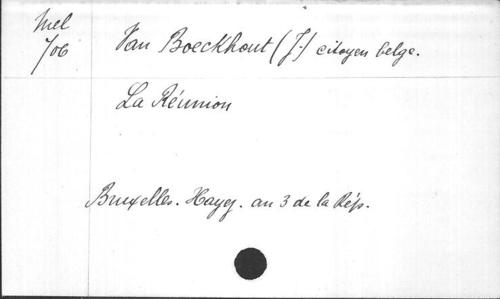 Mel
706
Van Boeckhout (J.) citoyen belge.
La Réunion
Bruxelles. Hayez. an 3 de la Rép.